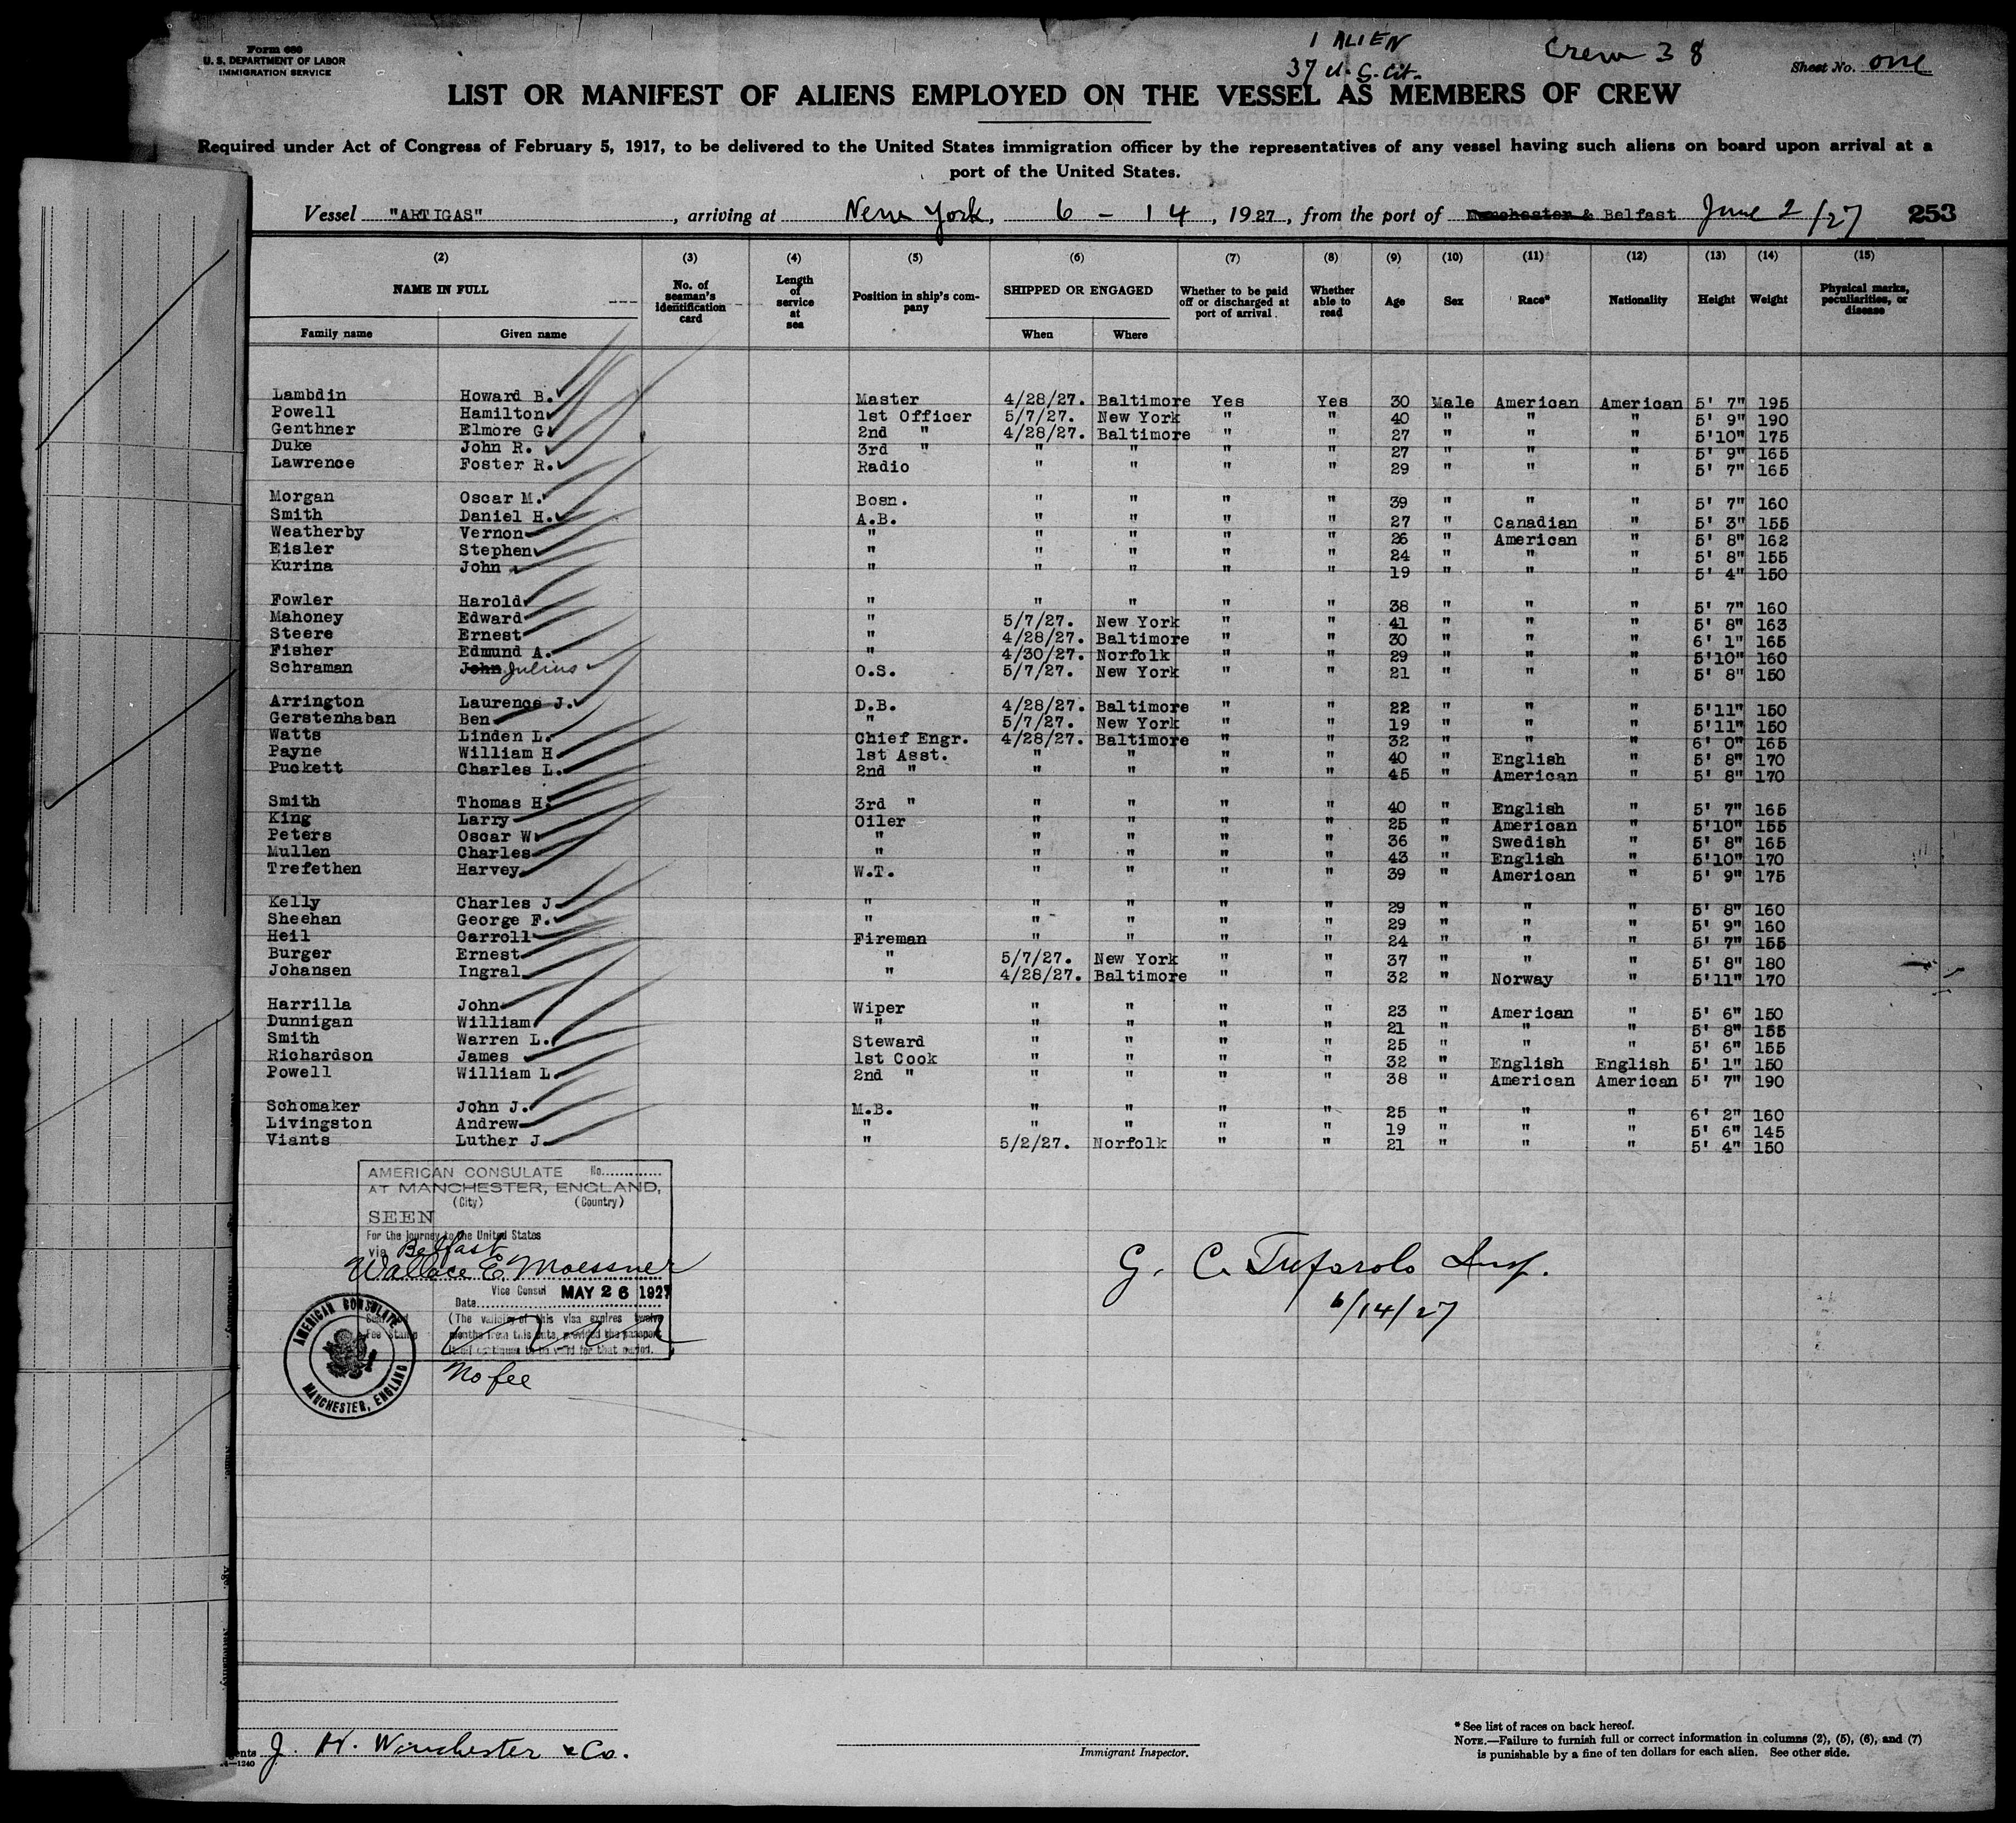 Form 680
U. S. DEPARTMENT OF LABOR
IMMIGRATION SERVICE
1 ALIEN
37 U. S. Cit.
Crew 38
Sheet No. one
LIST OR MANIFEST OF ALIENS EMPLOYED ON THE VESSEL AS MEMBERS OF CREW
Required under Act of Congress of February 5, 1917, to be delivered to the United States immigration officer by the representatives of any vessel having such aliens on board upon arrival at a
port of the United States.
Vessel "ARTIGAS", arriving at New York, 6 - 14, 1927, from the port of Manchester & Belfast June 2/27 253
(2) (3) (4) (5) (6) (7) (8) (9) (10) (11) (12) (13) (14) (15)
NAME IN FULL No. of seaman's identification card Length of service at sea Position in ship's company SHIPPED OR ENGAGED Whether to be paid off or discharged at port of arrival Whether able to read Age Sex Race* Nationality Height Weight Physical marks, peculiarities, or disease
Family name Given name When Where
Lambdin Howard B. Master 4/28/27. Baltimore Yes Yes 30 Male American American 5' 7" 195
Powell Hamilton 1st Officer 5/7/27. New York " " 40 " " " 5' 9" 190
Genthner Elmore G. 2nd " 4/28/27. Baltimore " " 27 " " " 5'10" 175
Duke John R. 3rd " " " " " 27 " " " 5' 9" 165
Lawrence Foster R. Radio " " " " 29 " " " 5' 7" 165
Morgan Oscar M. Bosn. " " " " 39 " " " 5' 7" 160
Smith Daniel H. A.B. " " " " 27 " Canadian " 5' 3" 155
Weatherby Vernon " " " " " 26 " American " 5' 8" 162
Eisler Stephen " " " " " 24 " " " 5' 8" 155
Kurina John " " " " " 19 " " " 5' 4" 150
Fowler Harold " " " " " 38 " " " 5' 7" 160
Mahoney Edward " 5/7/27. New York " " 41 " " " 5' 8" 163
Steere Ernest " 4/28/27. Baltimore " " 30 " " " 6' 1" 165
Fisher Edmund A. " 4/30/27. Norfolk " " 29 " " " 5'10" 160
Schraman John Julius O.S. 5/7/27. New York " " 21 " " " 5' 8" 150
Arrington Laurence J. D.B. 4/28/27. Baltimore " " 22 " " " 5'11" 150
Gerstenhaban Ben " 5/7/27. New York " " 19 " " " 5'11" 150
Watts Linden L. Chief Engr. 4/28/27. Baltimore " " 32 " " " 6' 0" 165
Payne William H 1st Asst. " " " " 40 " English " 5' 8" 170
Puckett Charles L. 2nd " " " " " 45 " American " 5' 8" 170
Smith Thomas H. 3rd " " " " " 40 " English " 5' 7" 165
King Larry Oiler " " " " 25 " American " 5'10" 155
Peters Oscar W. " " " " " 36 " Swedish " 5' 8" 165
Mullen Charles " " " " " 43 " English " 5'10" 170
Trefethen Harvey W.T. " " " " 39 " American " 5' 9" 175
Kelly Charles J " " " " " 29 " " " 5' 8" 160
Sheehan George F. " " " " " 29 " " " 5' 9" 160
Heil Carroll Fireman " " " " 24 " " " 5' 7" 155
Burger Ernest " 5/7/27. New York " " 37 " " " 5' 8" 180
Johansen Ingral " 4/28/27. Baltimore " " 32 " Norway " 5'11" 170
Harrilla John Wiper " " " " 23 " American " 5' 6" 150
Dunnigan William " " " " " 21 " " " 5' 8" 155
Smith Warren L. Steward " " " " 25 " " " 5' 6" 155
Richardson James 1st Cook " " " " 32 " English English 5' 1" 150
Powell William L 2nd " " " " " 38 " American American 5' 7" 190
Schomaker John J. M.B. " " " " 25 " " " 6' 2" 160
Livingston Andrew " " " " " 19 " " " 5' 6" 145
Viants Luther J " 5/2/27. Norfolk " " 21 " " " 5' 4" 150
AMERICAN CONSULATE No.
AT MANCHESTER, ENGLAND,
(City) (Country)
SEEN
For the journey to the United States
via Belfast
Wallace E. Moessner
Vice Consul
Date MAY 26 1927
(The validity of this visa expires twelve
months from this date, provided the passport
continues to be valid for that period.
Fee Stamp
No fee
AMERICAN CONSULATE
MANCHESTER, ENGLAND
G. C. Tufarolo Insp.
6/14/27
J. H. Winchester & Co.
Immigrant Inspector.
* See list of races on back hereof.
NOTE.—Failure to furnish full or correct information in columns (2), (5), (6), and (7)
is punishable by a fine of ten dollars for each alien. See other side.